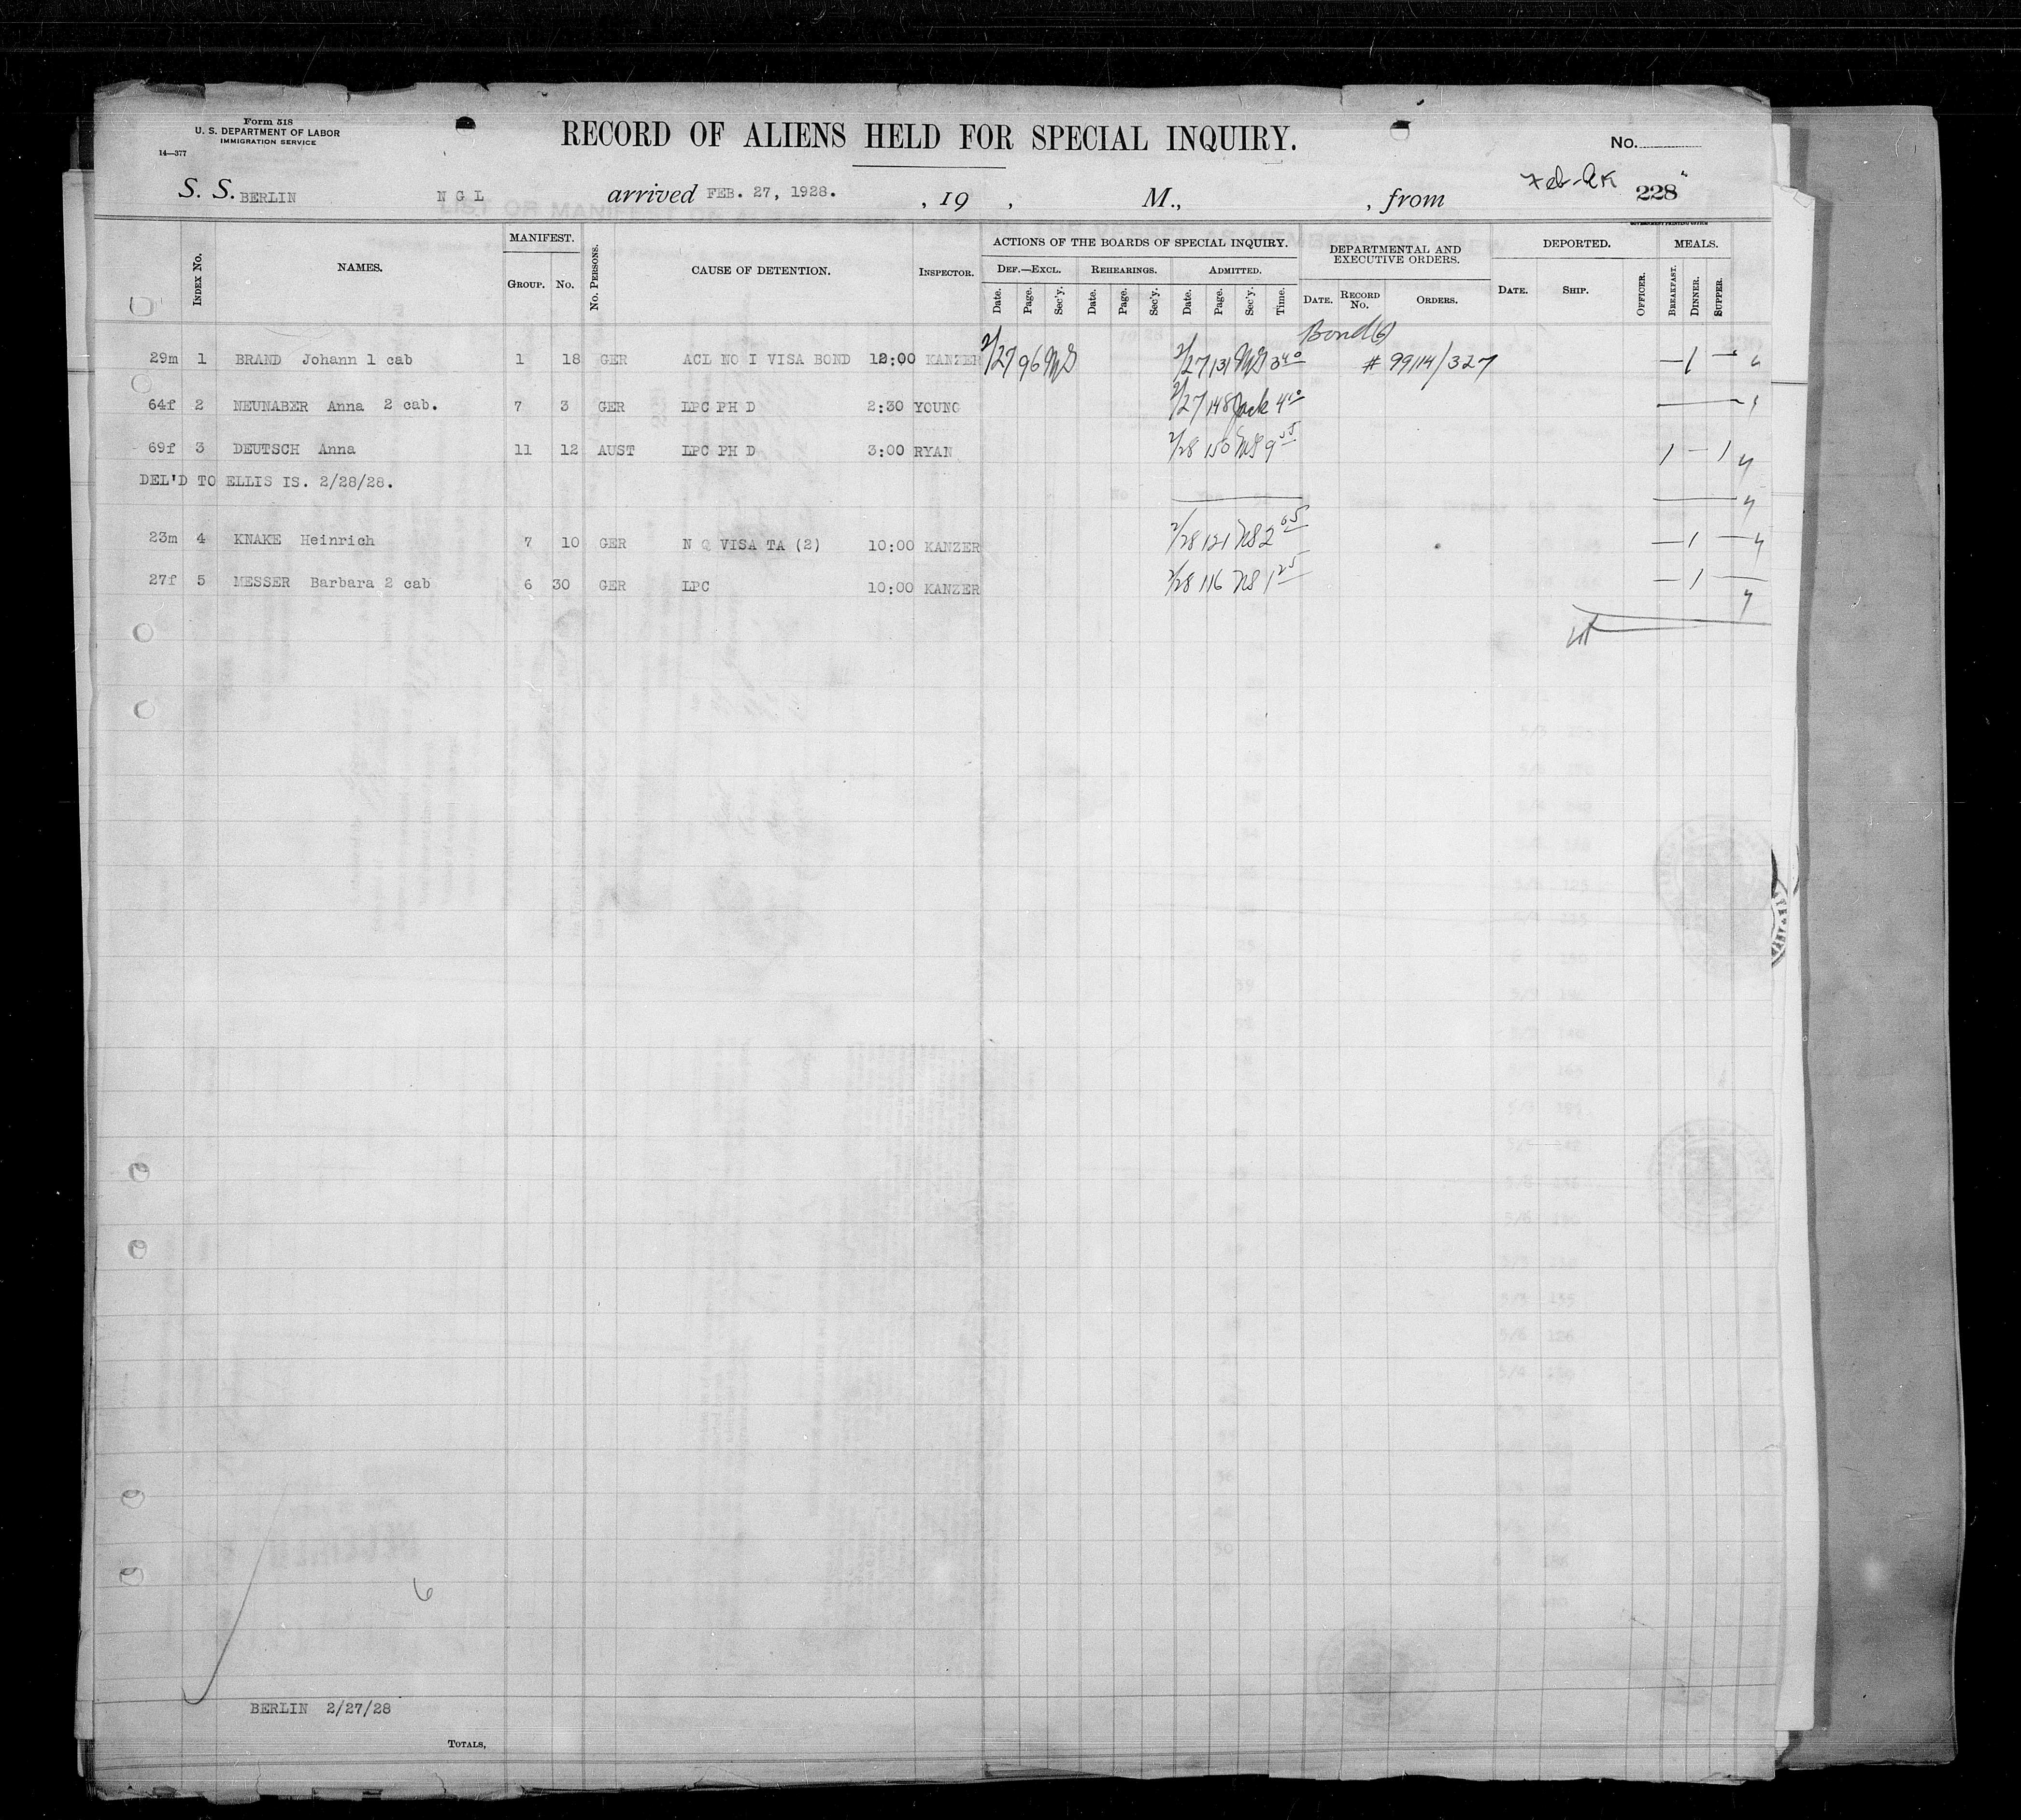 Form 518
U. S. DEPARTMENT OF LABOR
IMMIGRATION SERVICE
14—377
RECORD OF ALIENS HELD FOR SPECIAL INQUIRY.
No.
S. S. BERLIN N G L arrived FEB. 27, 1928. , 19 , M., , from
228
GOVERNMENT PRINTING OFFICE
INDEX NO. NAMES. MANIFEST. GROUP. NO. NO. PERSONS. CAUSE OF DETENTION. INSPECTOR.
ACTIONS OF THE BOARDS OF SPECIAL INQUIRY.
DEF.—EXCL. REHEARINGS. ADMITTED.
Date. Page. Sec'y. Date. Page. Sec'y. Date. Page. Sec'y. Time.
DEPARTMENTAL AND EXECUTIVE ORDERS.
DATE. RECORD NO. ORDERS.
DEPORTED.
DATE. SHIP. OFFICER.
MEALS.
BREAKFAST. DINNER. SUPPER.
Bond(6)
29m 1 BRAND Johann 1 cab 1 18 GER ACL NO I VISA BOND 12:00 KANZER 2/27 96 2/27 131 3 40 # 99114/327 — 1 —
64f 2 NEUNABER Anna 2 cab. 7 3 GER LPC PH D 2:30 YOUNG 2/27 148 Jack 4 10
69f 3 DEUTSCH Anna 11 12 AUST LPC PH D 3:00 RYAN 2/28 150 9 55 1 — 1
DEL'D TO ELLIS IS. 2/28/28.
23m 4 KNAKE Heinrich 7 10 GER N Q VISA TA (2) 10:00 KANZER 2/28 121 2 05 — 1 —
27f 5 MESSER Barbara 2 cab 6 30 GER LPC 10:00 KANZER 2/28 116 1 25 — 1 —
6
BERLIN 2/27/28
TOTALS,